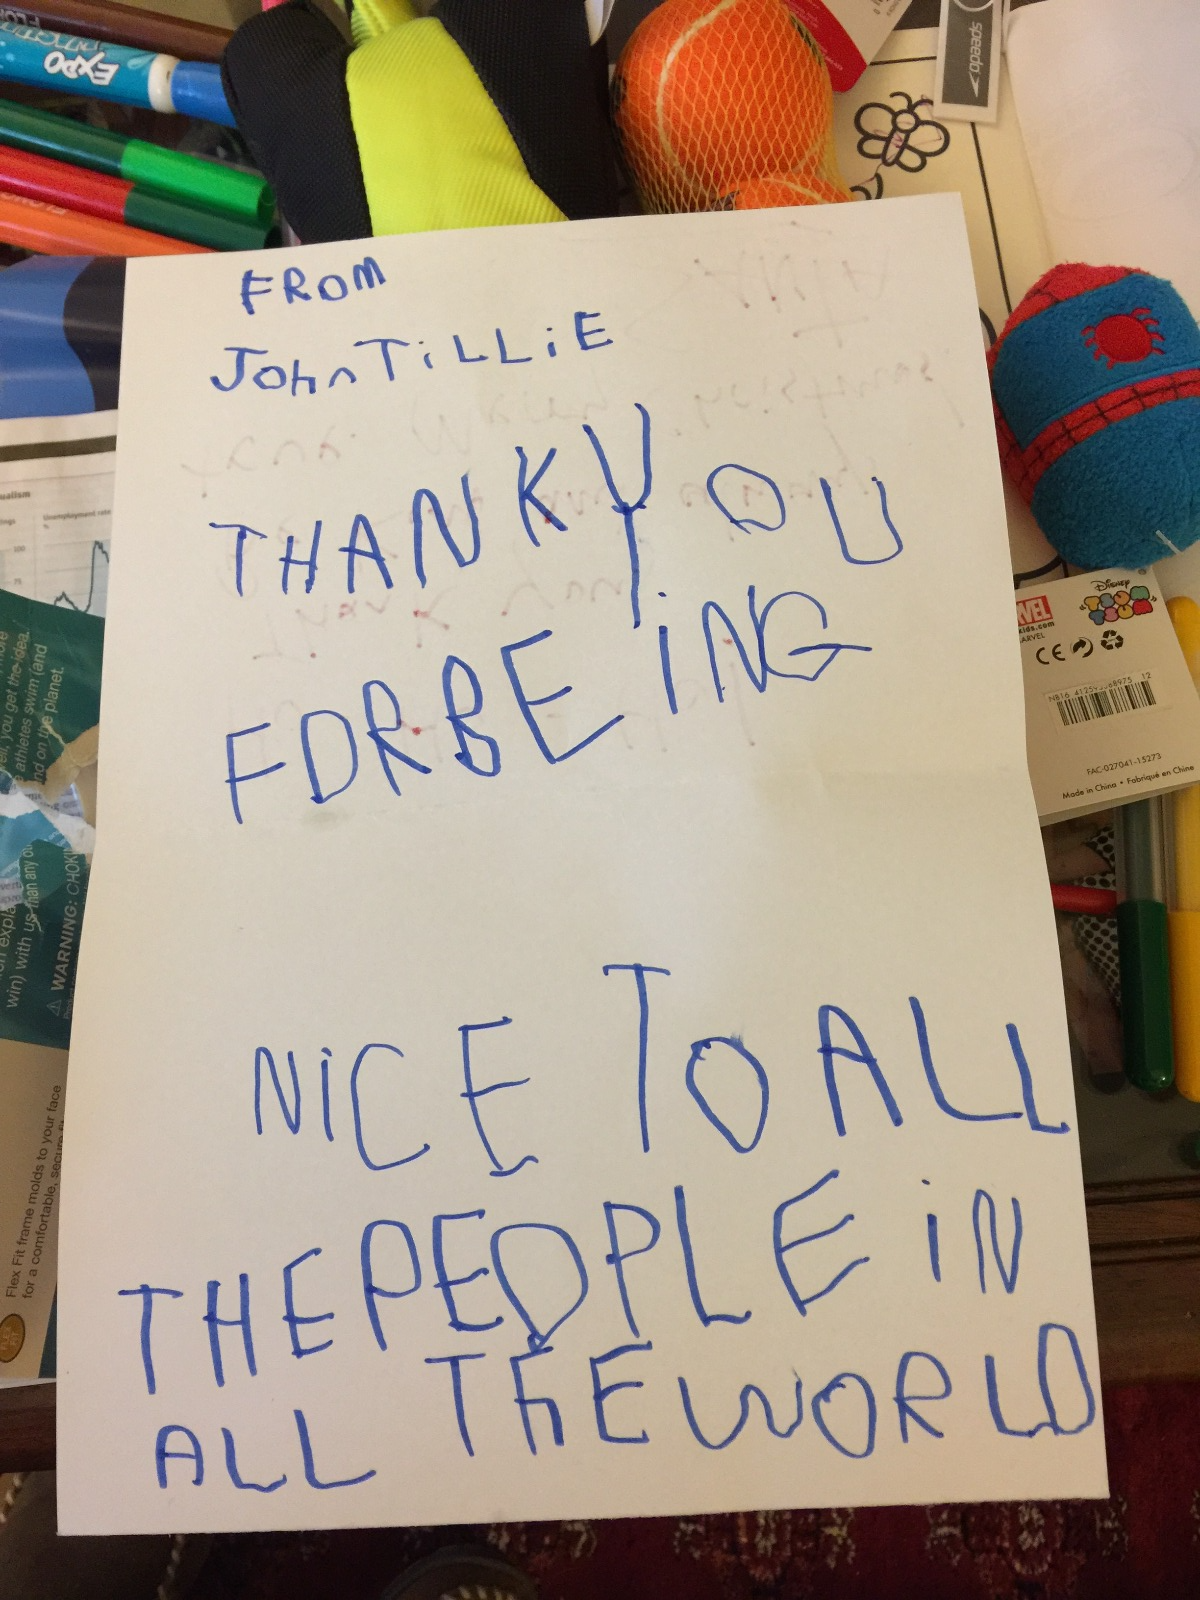 EXPO
speedo
FROM
John TiLLiE
THANK YOU
FOR BEING
NiCE TO ALL
THE PEOPLE iN
ALL THE WORLD
ualism
Unemployment rate
100
75
%
ell, you get the idea.
athletes swim (and
nd on the planet.
win) with us than any
WARNING: CHOKI
Flex Fit frame molds to your face
for a comfortable, secure
Disney
TSUM
TSUM
MARVEL
CE
12
FAC-027041-15273
Made in China • Fabriqué en Chine